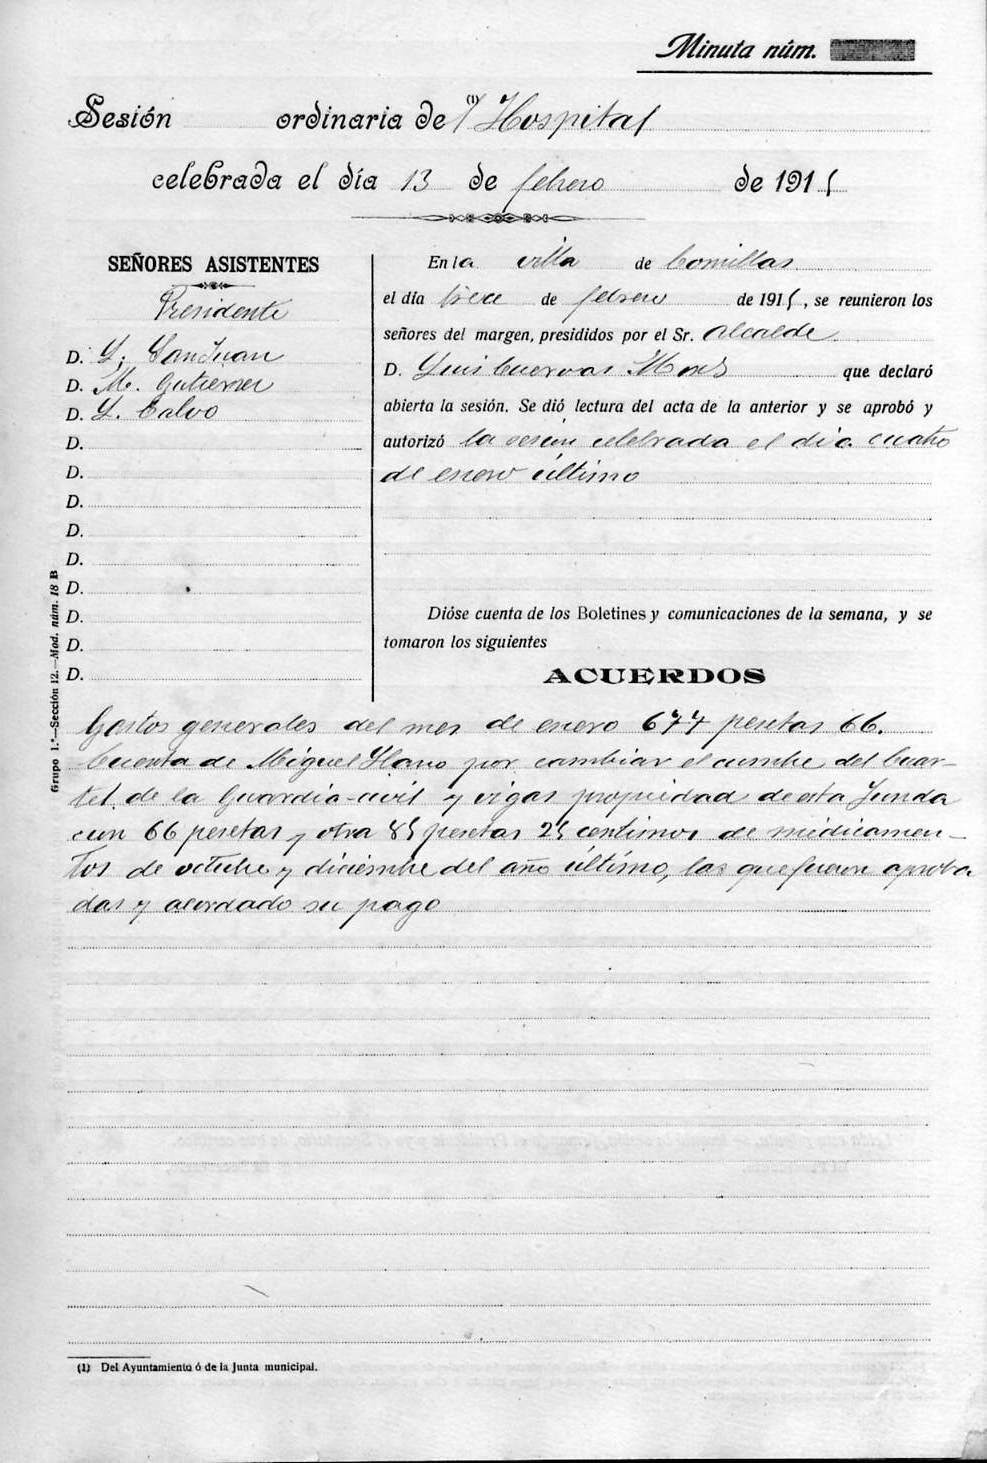 Minuta núm.
Sesión ordinaria de (1) Hospital
celebrada el día 13 de febrero de 1915
SEÑORES ASISTENTES
Presidente
D. L. SanJuan
D. M. Gutierrez
D. L. Calvo
D.
D.
D.
D.
D.
D.
D.
D.
D.
En la villa de Comillas
el día trece de febrero de 1915, se reunieron los
señores del margen, presididos por el Sr. Alcalde
D. Luis Cuervas Mons que declaró
abierta la sesión. Se dió lectura del acta de la anterior y se aprobó y
autorizó la sesion celebrada el dia cuatro
de enero último
Dióse cuenta de los Boletines y comunicaciones de la semana, y se
tomaron los siguientes
ACUERDOS
Gastos generales del mes de enero 677 pesetas 66.
Cuenta de Miguel Llano por cambiar el cumbre del Cuar-
tel de la Guardia-civil y vigas propiedad de esta Junda
con 66 pesetas y otra 85 pesetas 25 centimos de medicamen-
tos de octubre y diciembre del año último, las que fueron aproba
das y acordado su pago
Grupo 1.º—Sección 12.—Mod. núm. 18 B
(1) Del Ayuntamiento ó de la Junta municipal.